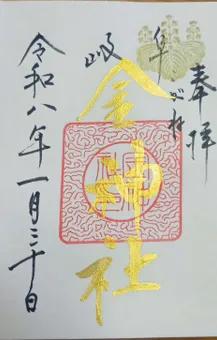 奉拝
岐阜
金神社
令和八年一月三十日